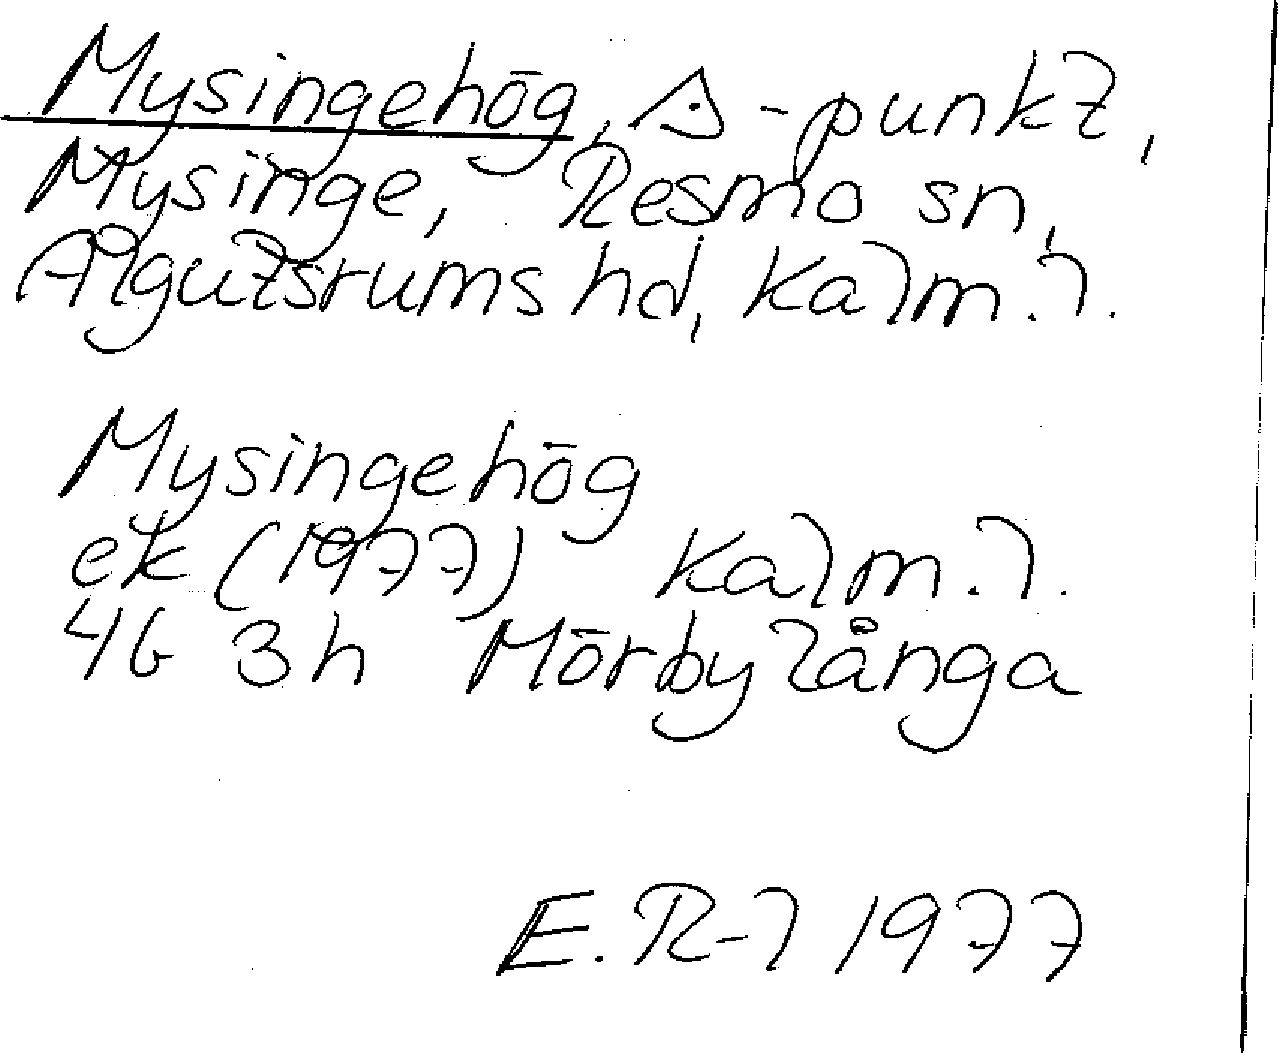 Mysingehög, △-punkt,
Mysinge, Resmo sn,
Algutsrums hd, Kalm. l.
Mysingehög
ek (1977) Kalm. l.
4G 3h Mörbylånga
E. R-l 1977